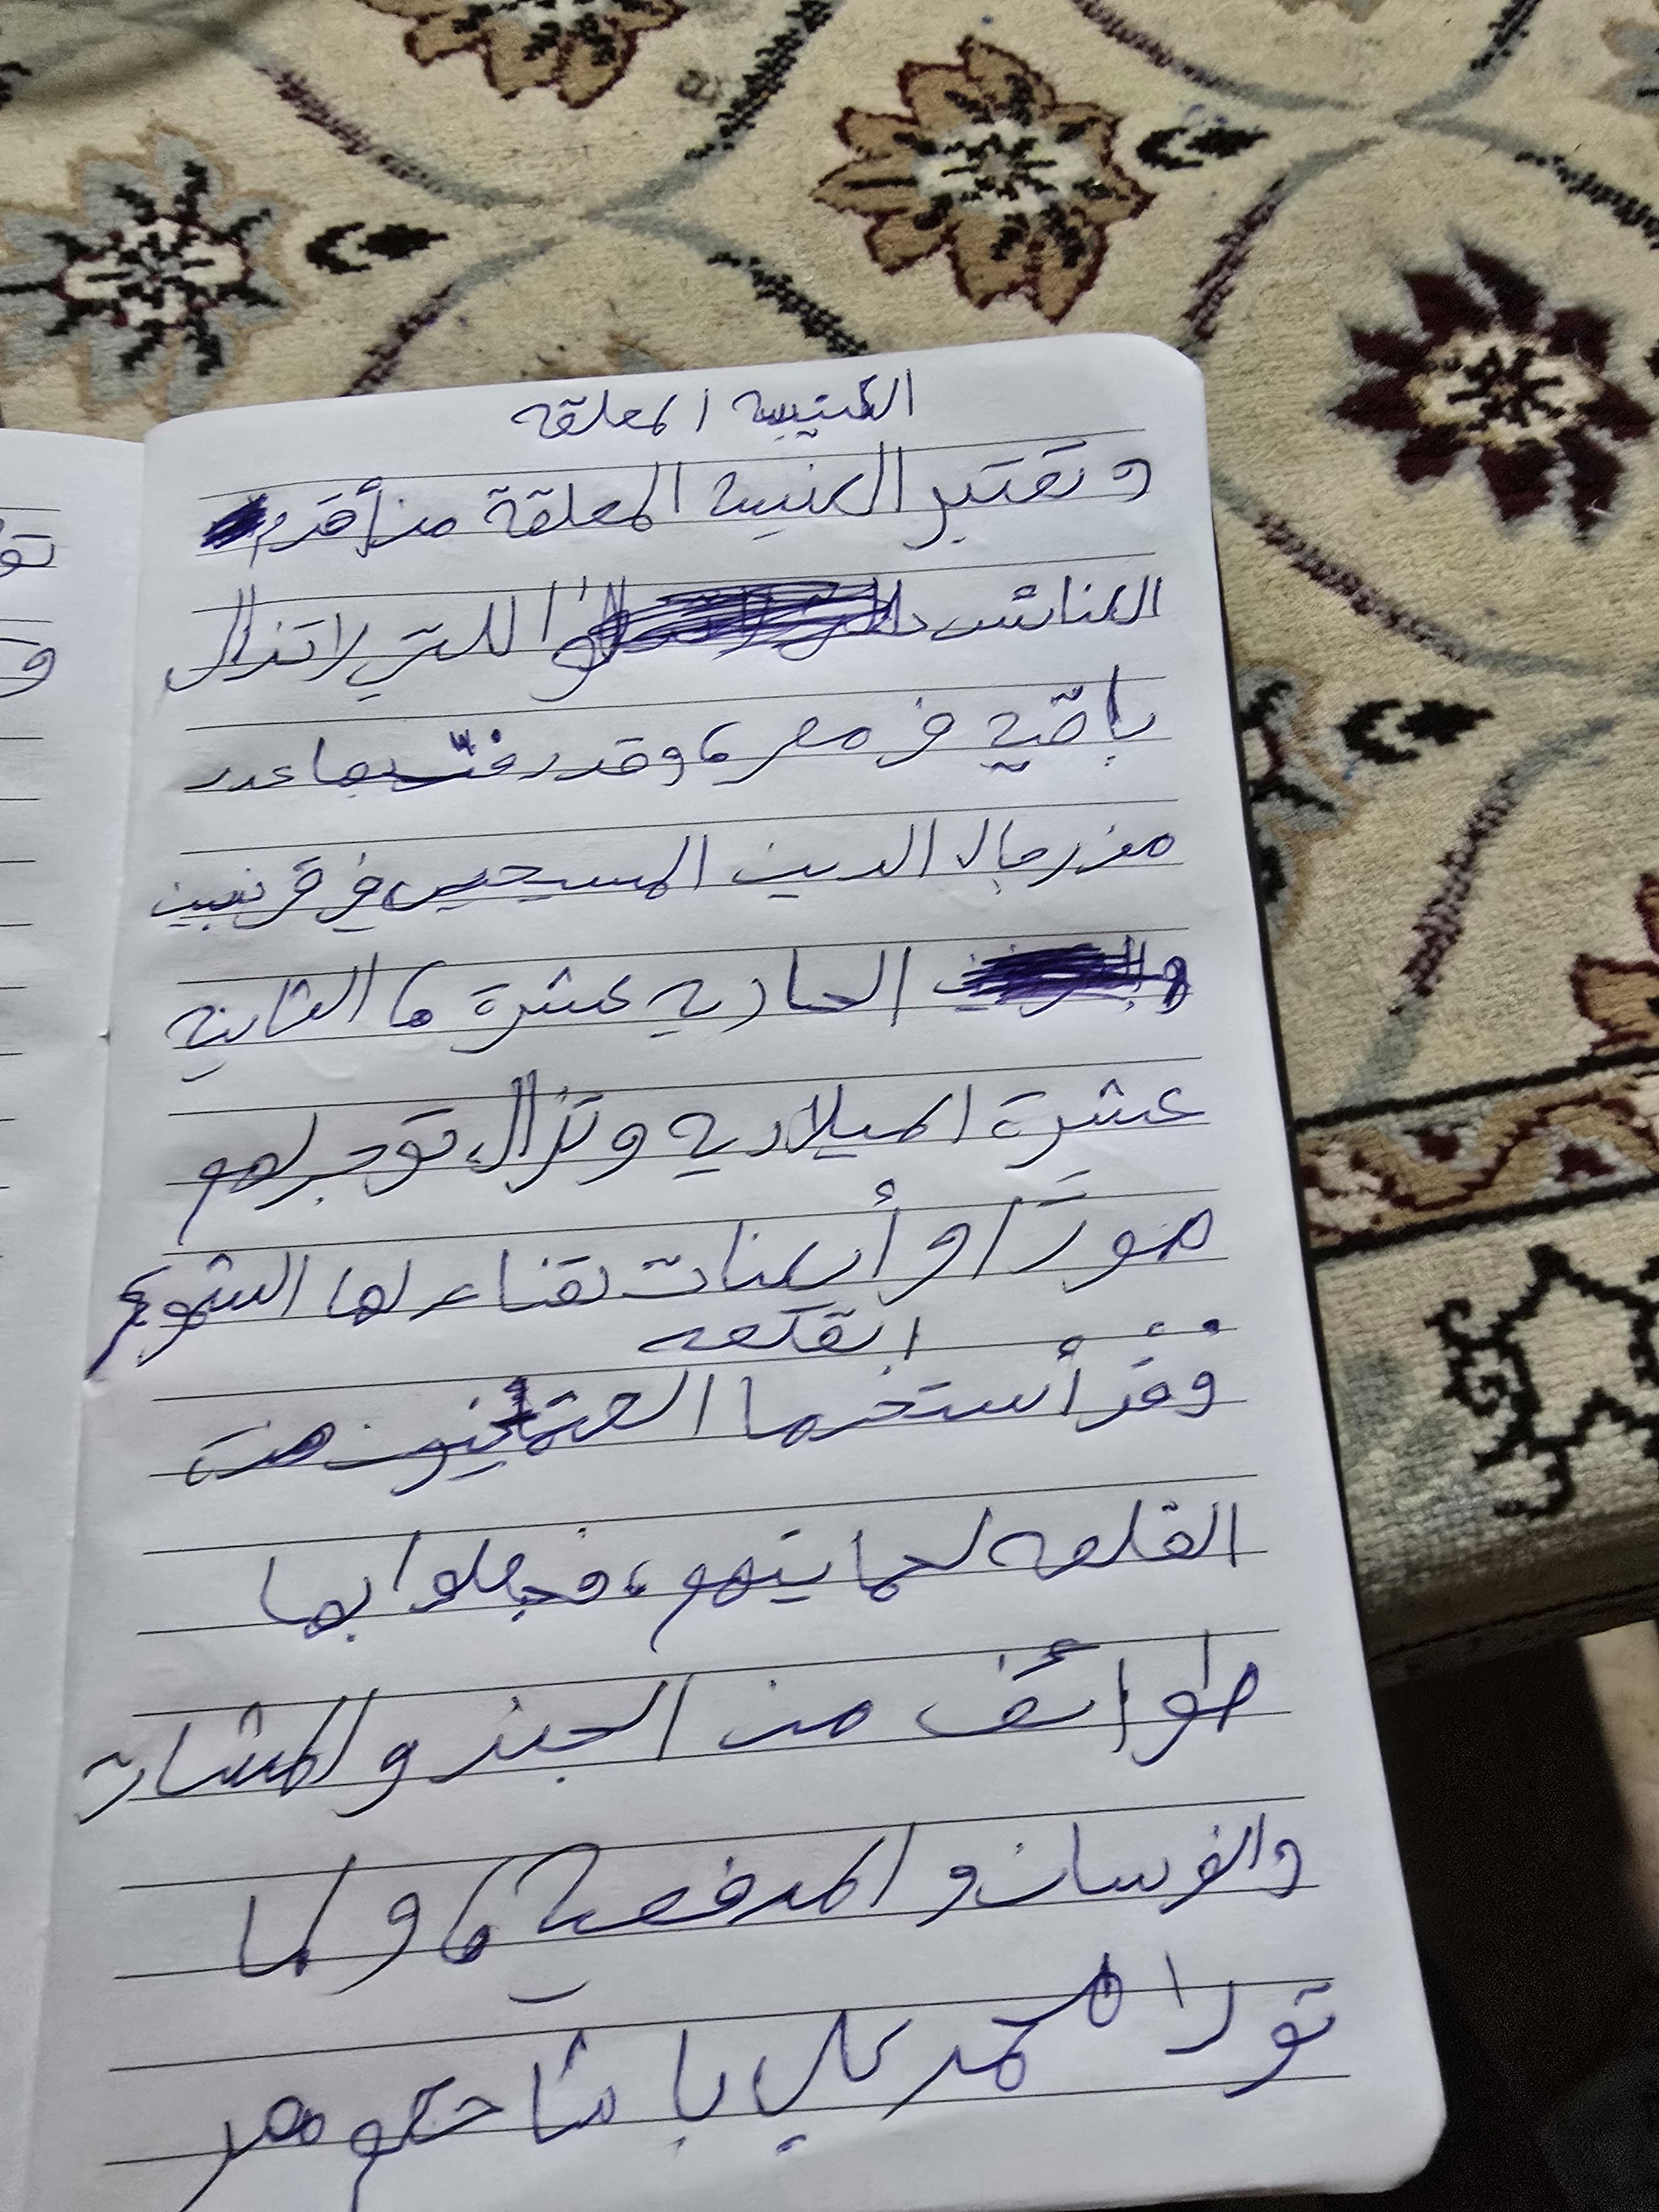 الكنيسه المعلقه
وتعتبر الكنيسه المعلقة من أقدم
الكنائس اللتي لا تذال
باقيه في مصر، وقد دفنت بها عدد
من رجال الدين المسيحين في قرنيين
الحاديه عشرة، الثانيه
عشرة الميلاديه وتزال توجد لهم
صورًا وأيكنات تقناء لها الشموع
القكعه
وقد أستخدما العتمانيون هذة
القلعه لحمايتهم، فجعلوا بها
طوائف من الجند والمشاة
والفرسان و المدفعية، ولما
تولا محمد علي باشا حكم مصر
تو
و